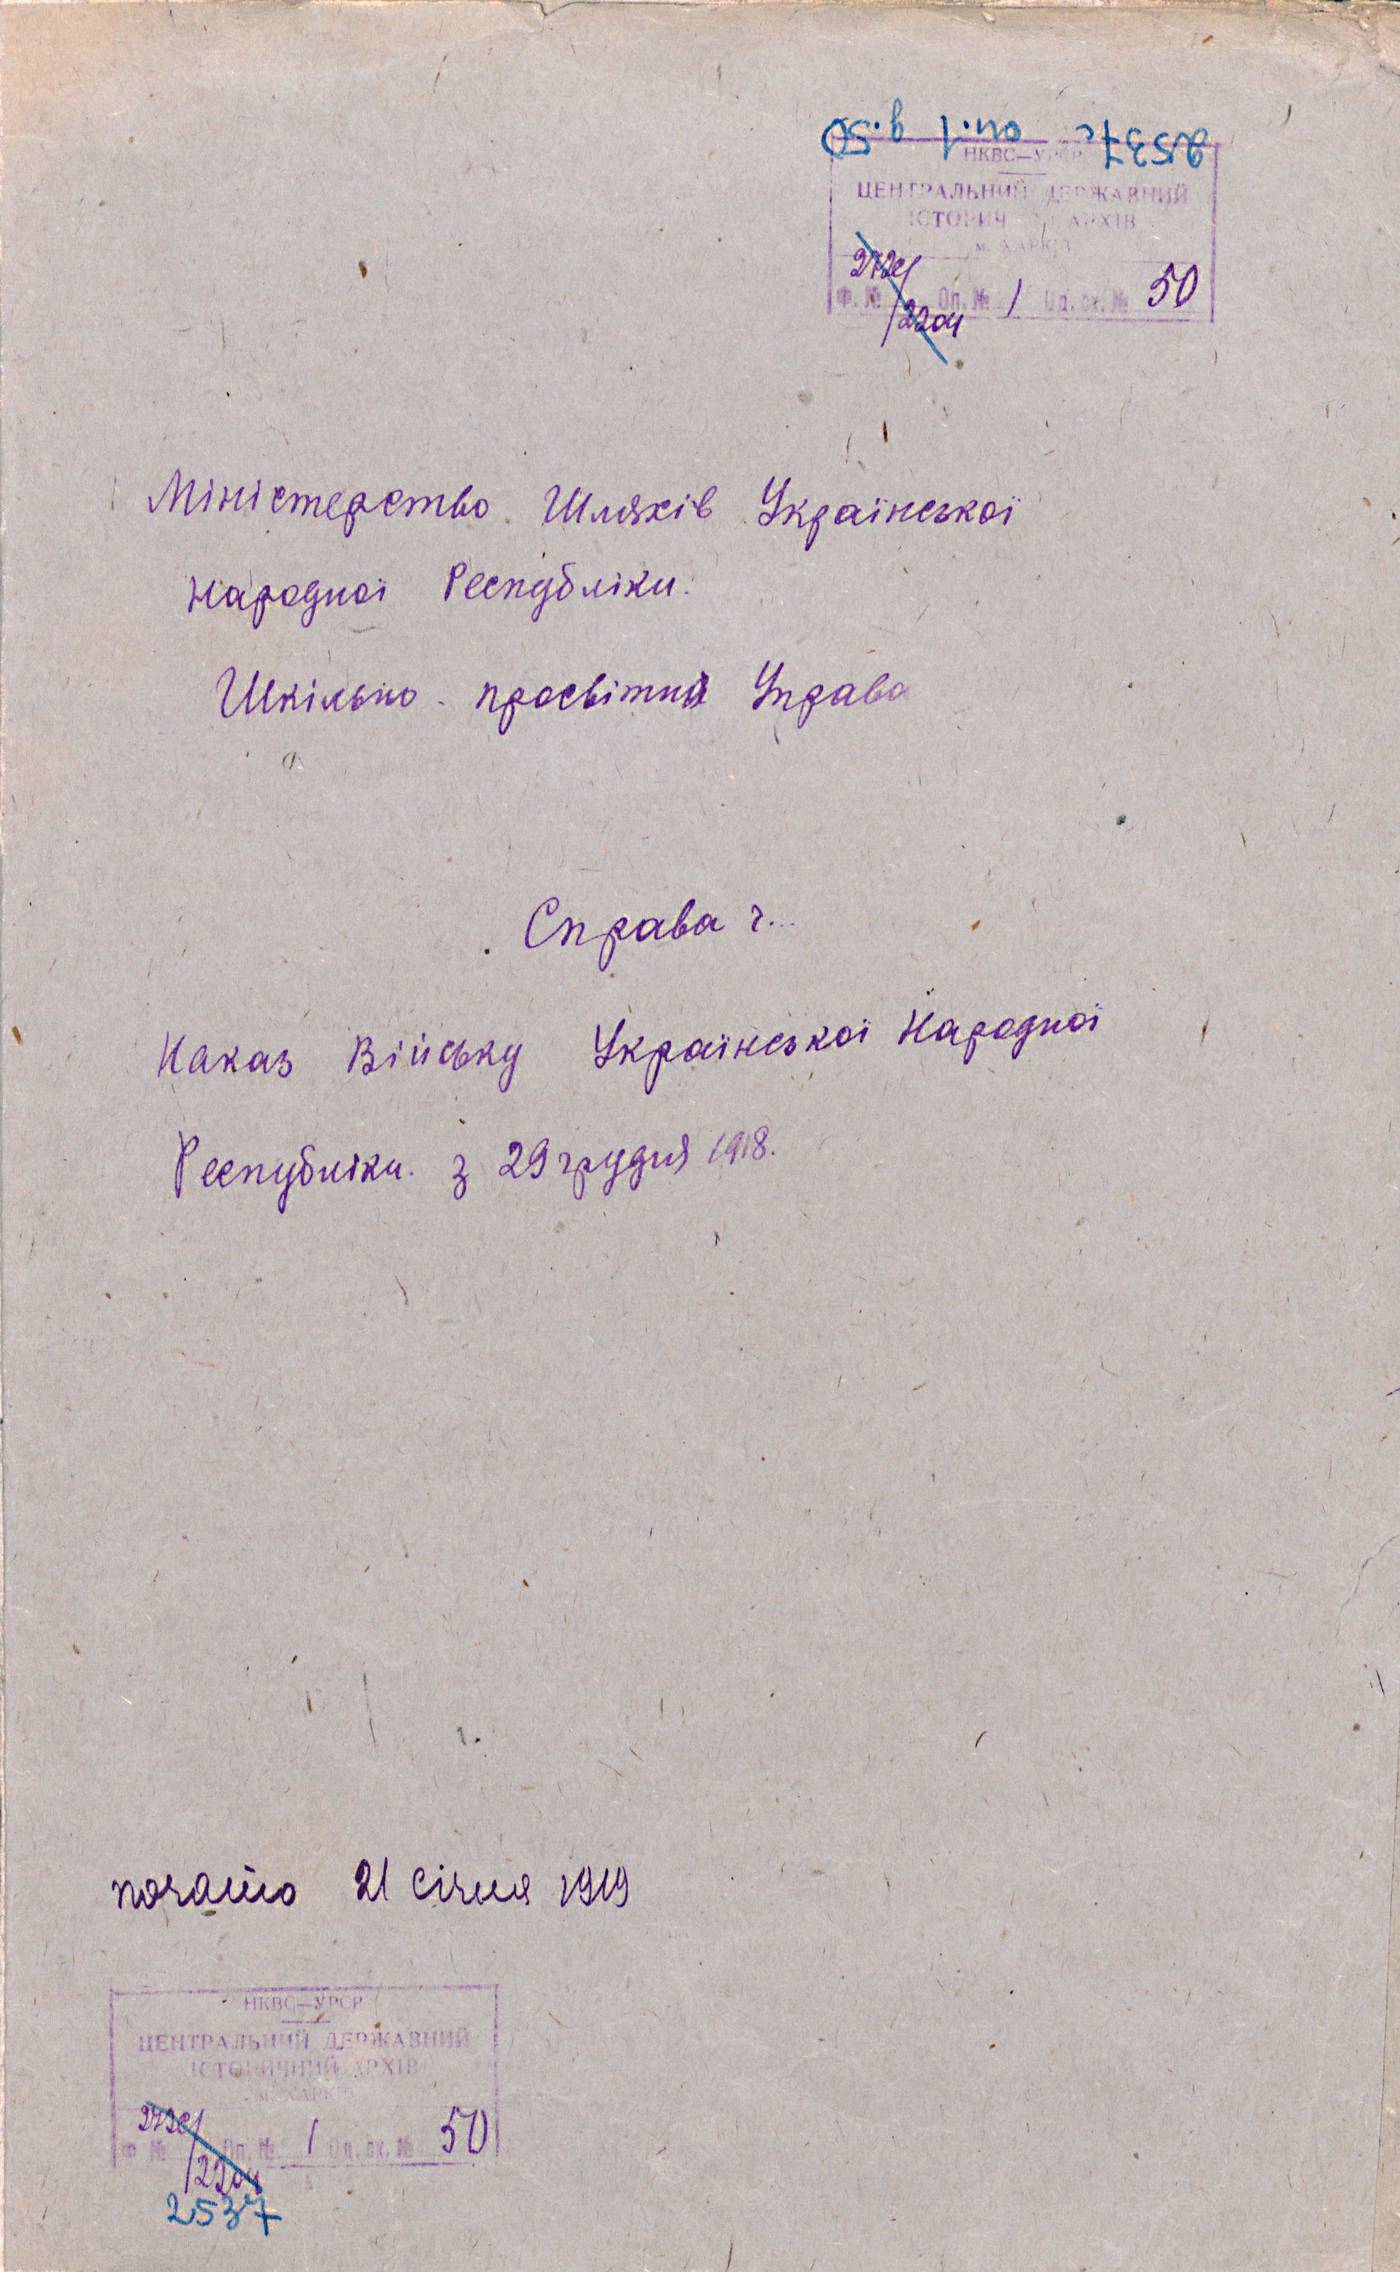 2537с оп.1 д.50
НКВС—УРСР
ЦЕНТРАЛЬНИЙ ДЕРЖАВНИЙ
ІСТОРИЧНИЙ АРХІВ
м. ХАРКІВ
Ф. № Оп. № 1 Од. сх. № 50
2204
Міністерство Шляхів Української
Народної Республіки.
Шкільно - просвітня Управа
Справа ч...
Наказ Війську Української Народної
Республіки. з 29 грудня 1918.
почато 21 січня 1919
НКВС—УРСР
ЦЕНТРАЛЬНИЙ ДЕРЖАВНИЙ
ІСТОРИЧНИЙ АРХІВ
м. ХАРКІВ
Ф № Оп. № 1 Од. сх. № 50
2204
2537